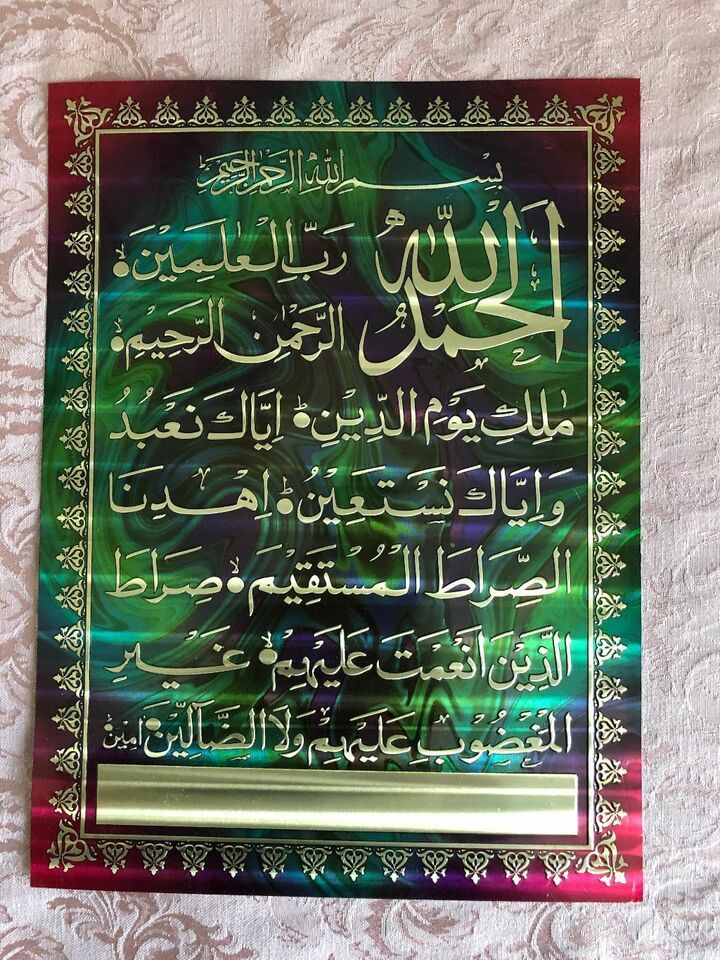 بِسْمِ اللهِ الرَّحْمٰنِ الرَّحِيْمِ
اَلْحَمْدُ لِلّٰهِ رَبِّ الْعٰلَمِيْنَ ۙ
الرَّحْمٰنِ الرَّحِيْمِ ۙ
مٰلِكِ يَوْمِ الدِّيْنِ ؕ اِيَّاكَ نَعْبُدُ
وَاِيَّاكَ نَسْتَعِيْنُ ؕ اِهْدِنَا
الصِّرَاطَ الْمُسْتَقِيْمَ ۙ صِرَاطَ
الَّذِيْنَ اَنْعَمْتَ عَلَيْهِمْ ۙ غَيْرِ
الْمَغْضُوْبِ عَلَيْهِمْ وَلَا الضَّآلِّيْنَ ۠ اٰمِيْن